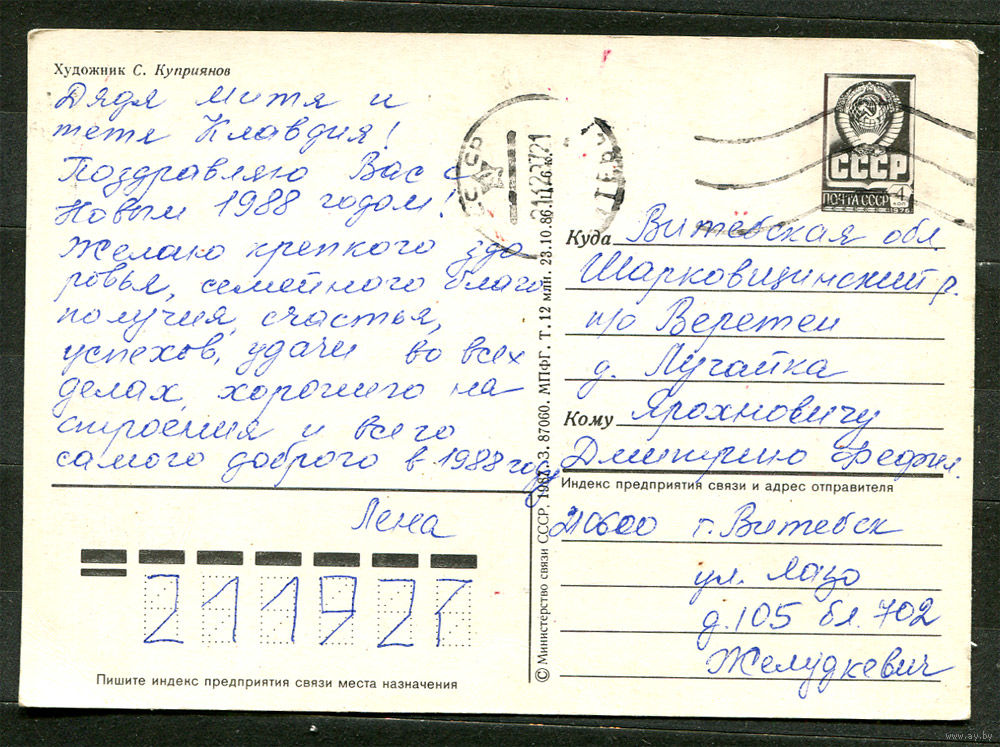 Художник С. Куприянов
Дядя Митя и
тетя Клавдия!
Поздравляю Вас с
Новым 1988 годом!
Желаю крепкого здо
ровья, семейного благо
получия, счастья,
успехов, удачи во всех
делах, хорошего на
строения и всего
самого доброго в 1988 году
Лена
211921
Пишите индекс предприятия связи места назначения
© Министерство связи СССР, 1987. З. 87060. МПФГ. Т. 12 млн. 23.10.86. Ц. 6 к.
СССР
СССР
ПОЧТА СССР 4 коп
1976
Куда Витебская обл.
Шарковщинский р.
п/о Веретеи
д. Лучайка
Кому Ярохновичу
Дмитрию
Индекс предприятия связи и адрес отправителя
210600 г. Витебск
ул. Лазо
д. 105 бл. 702
Желудкевич
www.ay.by